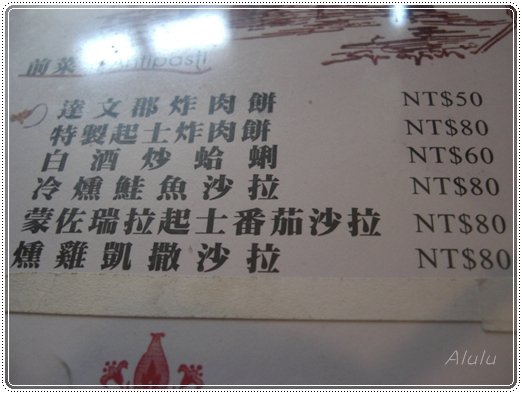 前菜 Antipasti
達文郡炸肉餅 NT$50
特製起士炸肉餅 NT$80
白酒炒蛤蜊 NT$60
冷燻鮭魚沙拉 NT$80
蒙佐瑞拉起士番茄沙拉 NT$80
燻雞凱撒沙拉 NT$80
Alulu